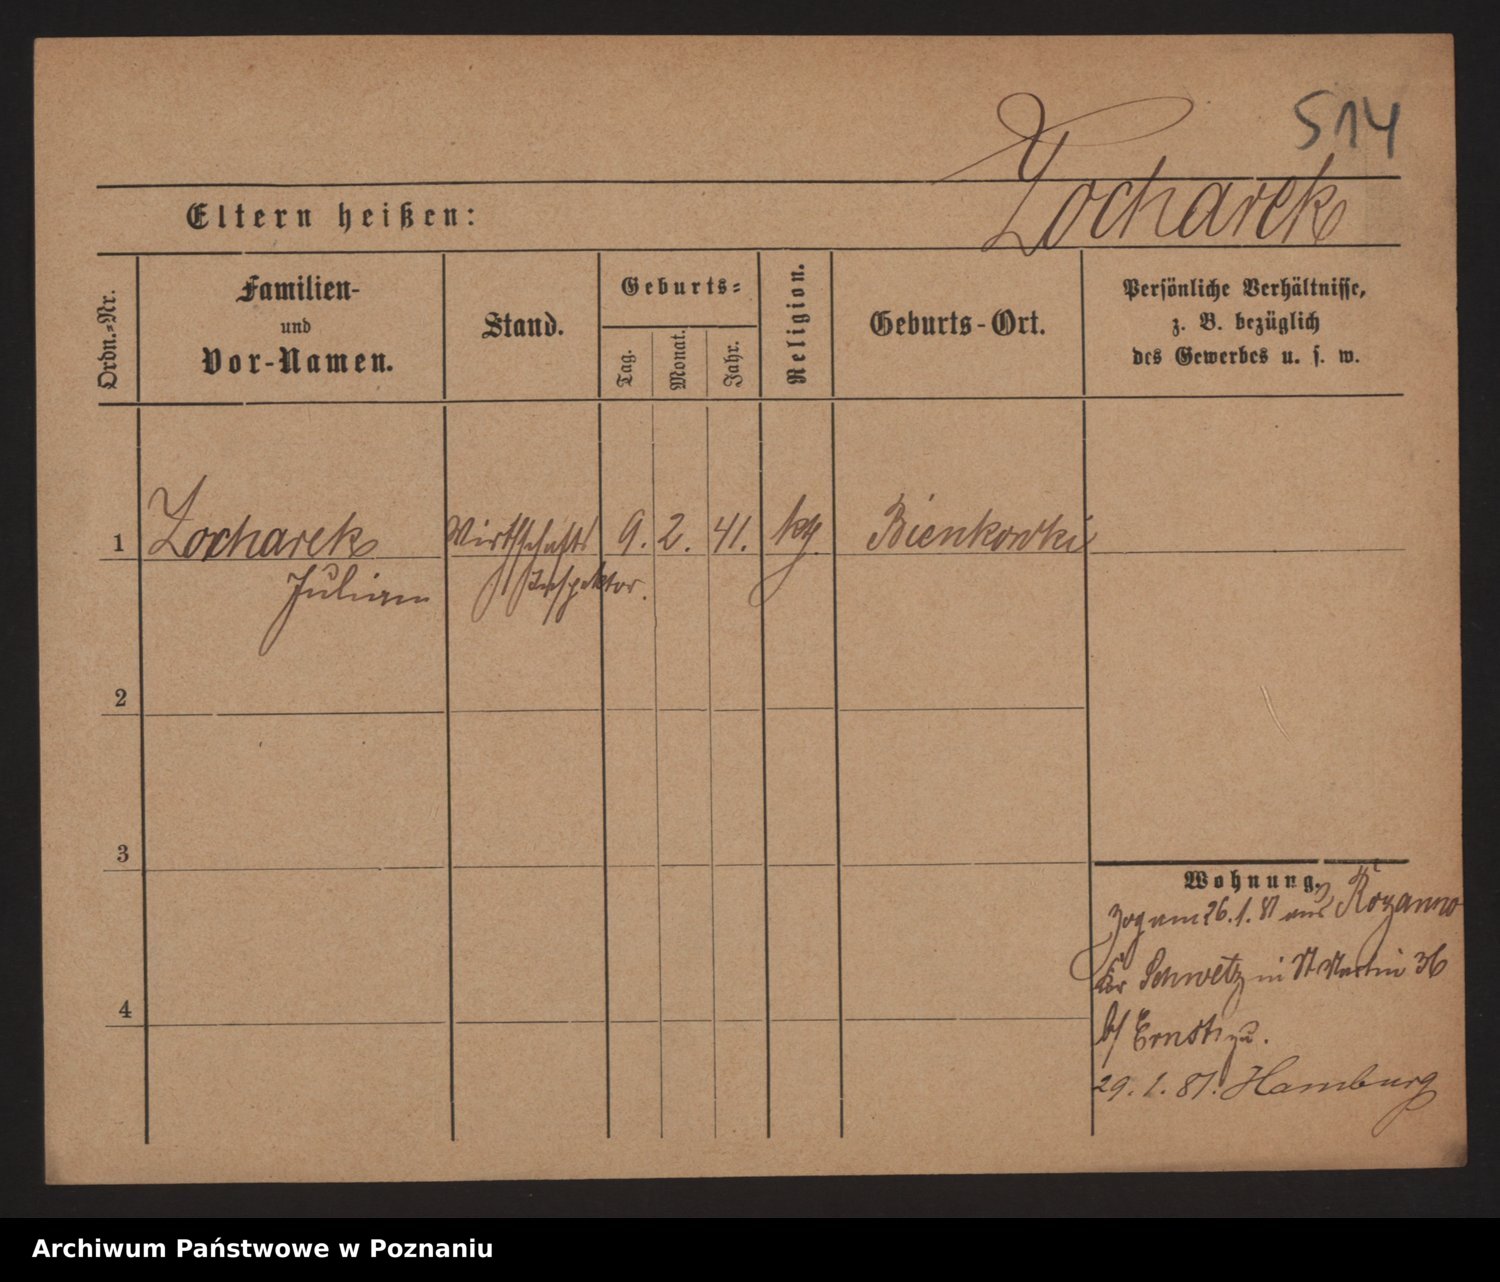 514
Zocharek
Eltern heißen:
Ordn.=Nr.
Familien-
und
Vor-Namen.
Stand.
Geburts=
Tag.
Monat.
Jahr.
Religion.
Geburts-Ort.
Persönliche Verhältnisse,
z. B. bezüglich
des Gewerbes u. s. w.
1 Zocharek Wirthschafts 9. 2. 41. Bienkowki
Julian Inspektor.
2
3
4
Wohnung.
Zog am 26.1.81 aus Rozanno
Kr Schwetz in St Martin 36
b/ Ernst zu.
29. 1. 81. Hamburg
Archiwum Państwowe w Poznaniu